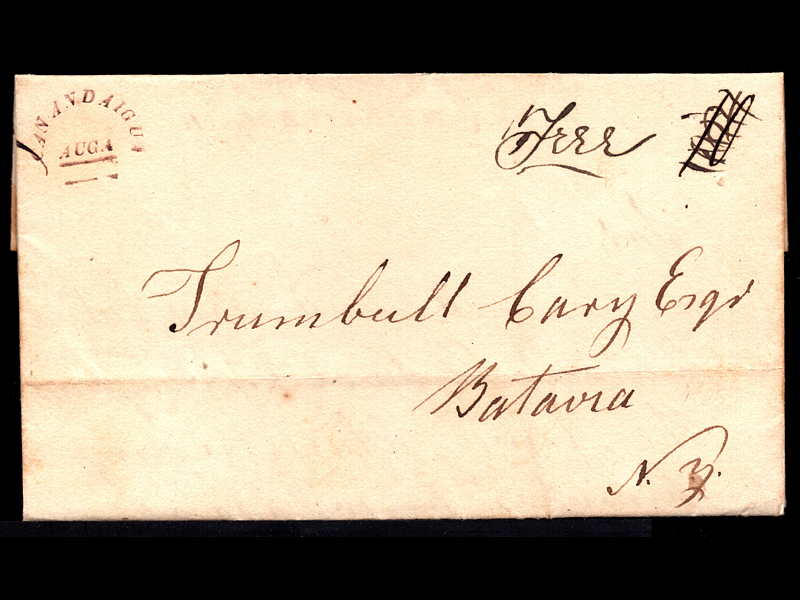 CANANDAIGUA
AUGA
Free
Trumbull Cary Esqr
Batavia
N. Y.